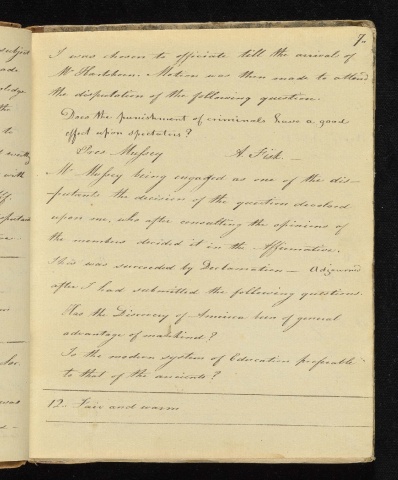 7.
I was chosen to officiate till the arrival of
Mr Hartshorn. Motion was then made to attend
the disputation of the following question.
Does the punishment of criminals have a good
effect upon spectators?
Mussey A Fisk. —
Mr Mussey being engaged as one of the dis-
putants the decision of the question devolved
upon me, who after consulting the opinions of
the members decided it in the Affirmative.
This was succeeded by Declamation — Adjourned
after I had submitted the following questions.
Has the Discovery of America been of general
advantage of mankind?
Is the modern system of Education preferable
to that of the ancients?
12. Fair and warm